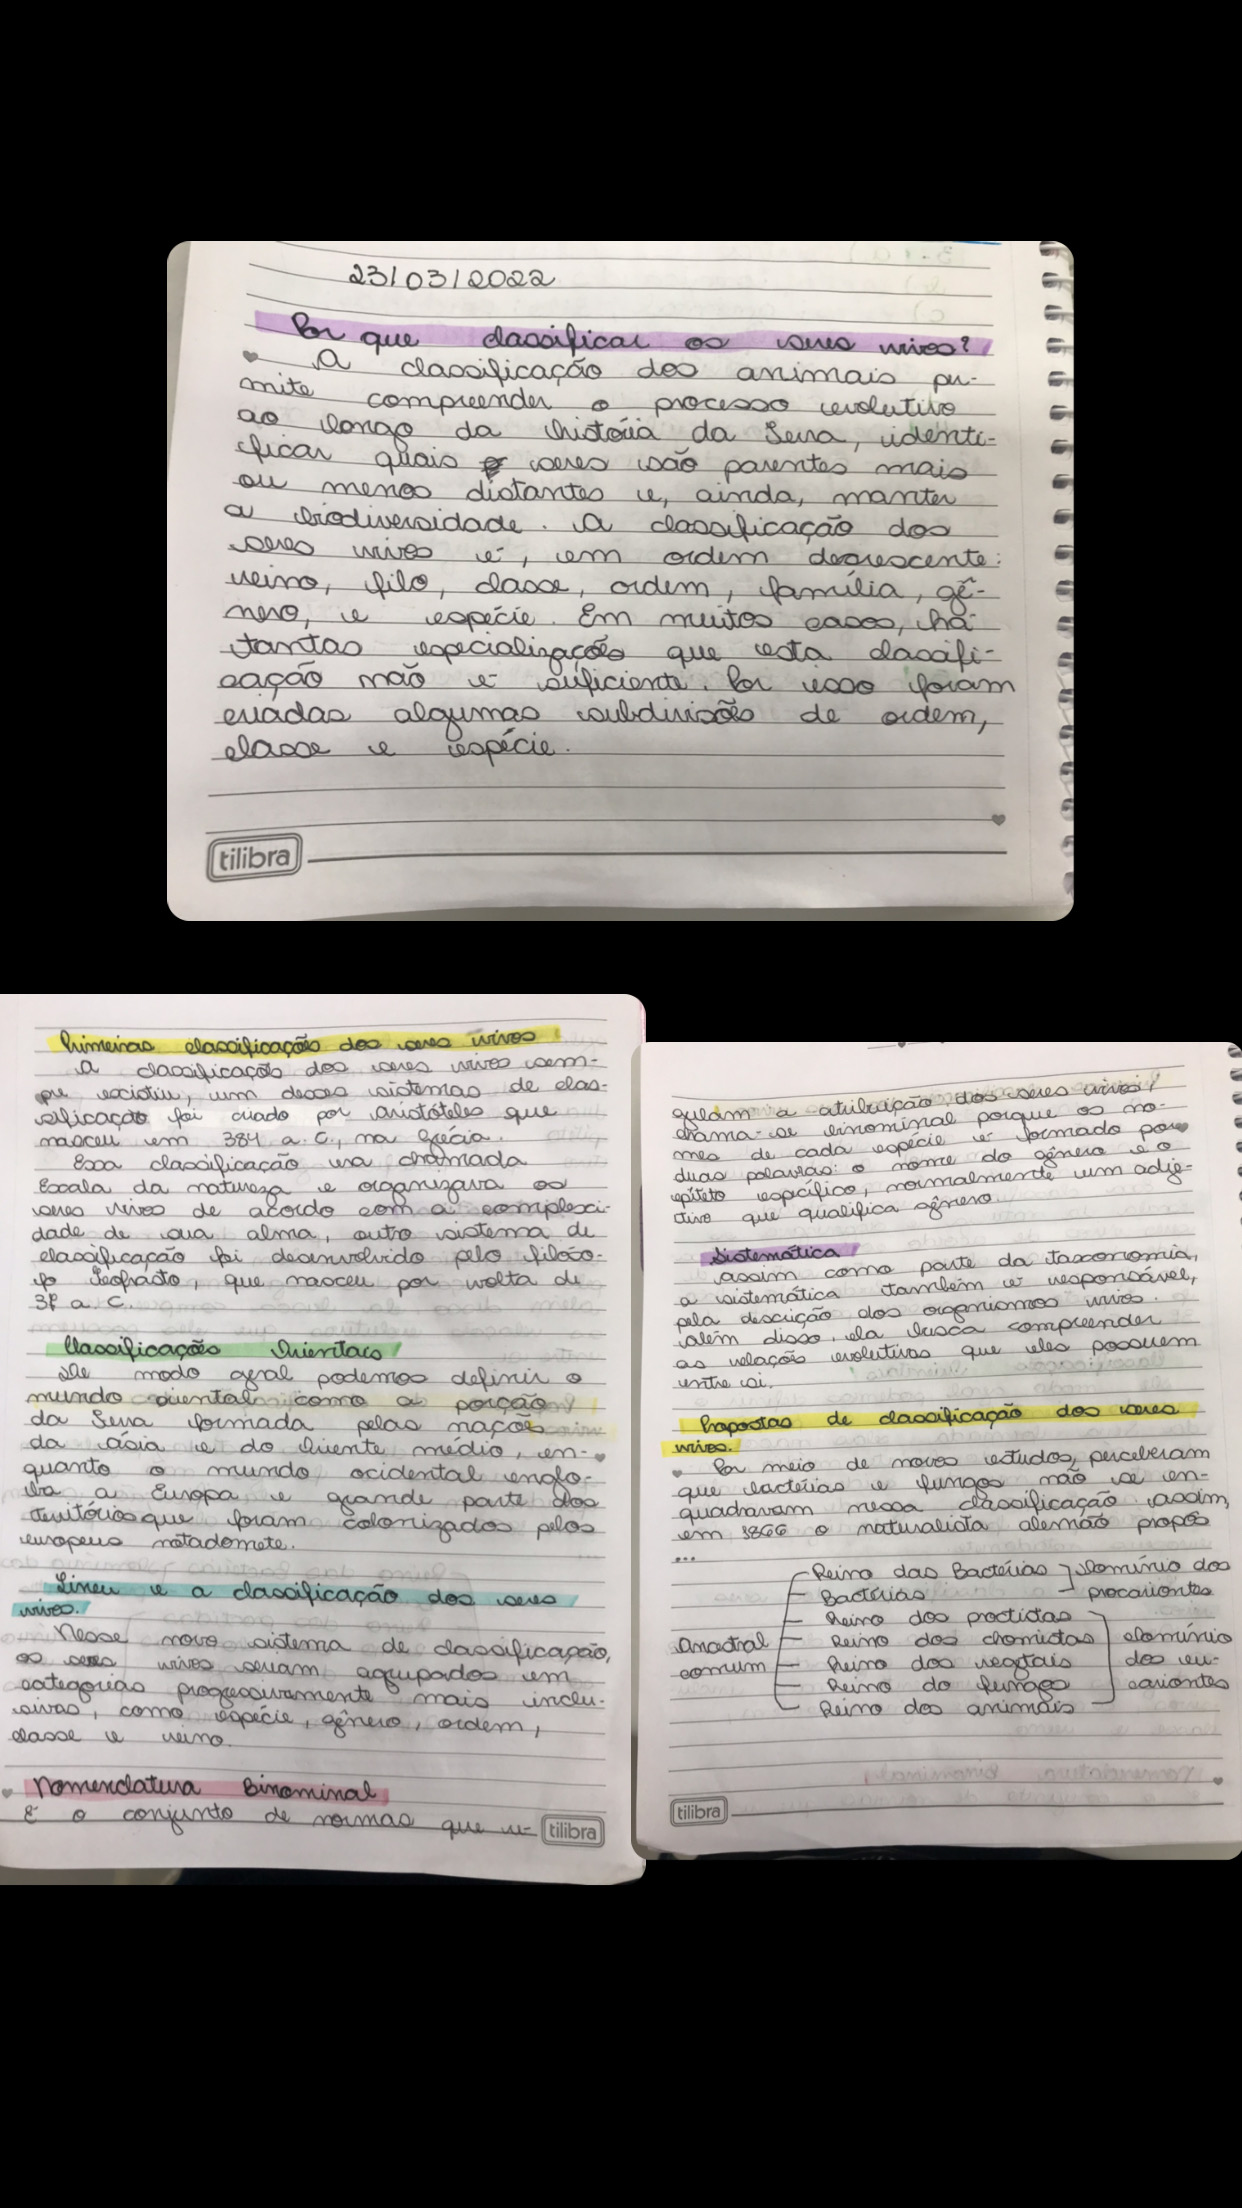 23/03/2022
Por que classificar os seres vivos?
A classificação dos animais per-
mite compreender o processo evolutivo
ao longo da história da Terra, identi-
ficar quais seres são parentes mais
ou menos distantes e, ainda, manter
a biodiversidade. A classificação dos
seres vivos é, em ordem decrescente:
reino, filo, classe, ordem, família, gê-
nero, e espécie. Em muitos casos, há
tantas especializações que esta classifi-
cação não é suficiente. Por isso foram
criadas algumas subdivisões de ordem,
classe e espécie.
tilibra
Primeiras classificações dos seres vivos
A classificação dos seres vivos sem-
pre existiu, um desses sistemas de clas-
sificação foi criado por Aristóteles que
nasceu em 384 a.C., na Grécia.
Essa classificação era chamada
Escala da natureza e organizava os
seres vivos de acordo com a complexi-
dade de sua alma, outro sistema de
classificação foi desenvolvido pelo filóso-
fo Teofrasto, que nasceu por volta de
a.C.
Classificações Orientais
De modo geral podemos definir o
mundo oriental como a porção
da Terra formada pelas nações
da Ásia e do Oriente médio, en-
quanto o mundo ocidental englo-
ba a Europa e grande parte dos
territórios que foram colonizados pelos
europeus
Lineu e a classificação dos seres
vivos.
Nesse novo sistema de classificação,
os seres vivos seriam agrupados em
categorias progressivamente mais inclu-
sivas, como espécie, gênero, ordem,
classe e reino.
Nomenclatura Binominal
É o conjunto de normas que re-
tilibra
gulam a atribuição dos seres vivos,
chama-se binominal porque os no-
mes de cada espécie é formado por
duas palavras: o nome do gênero e o
epíteto específico, normalmente um adje-
ctivo que qualifica gênero
Sistemática
Assim como parte da taxonomia,
a sistemática também é responsável,
pela descrição dos organismos vivos.
além disso, ela busca compreender
as relações evolutivas que eles possuem
entre si.
Propostas de classificação dos seres
vivos.
Por meio de novos estudos, perceberam
que bactérias e fungos não se en-
quadravam nessa classificação assim,
em 1866 o naturalista alemão propôs
...
Reino das Bactérias Domínio dos
Bactérias procariontes
Reino dos proctistas
Ancestral Reino dos chomistas domínio
comum Reino dos vegetais dos eu-
Reino do fungos cariontes
Reino dos animais
tilibra